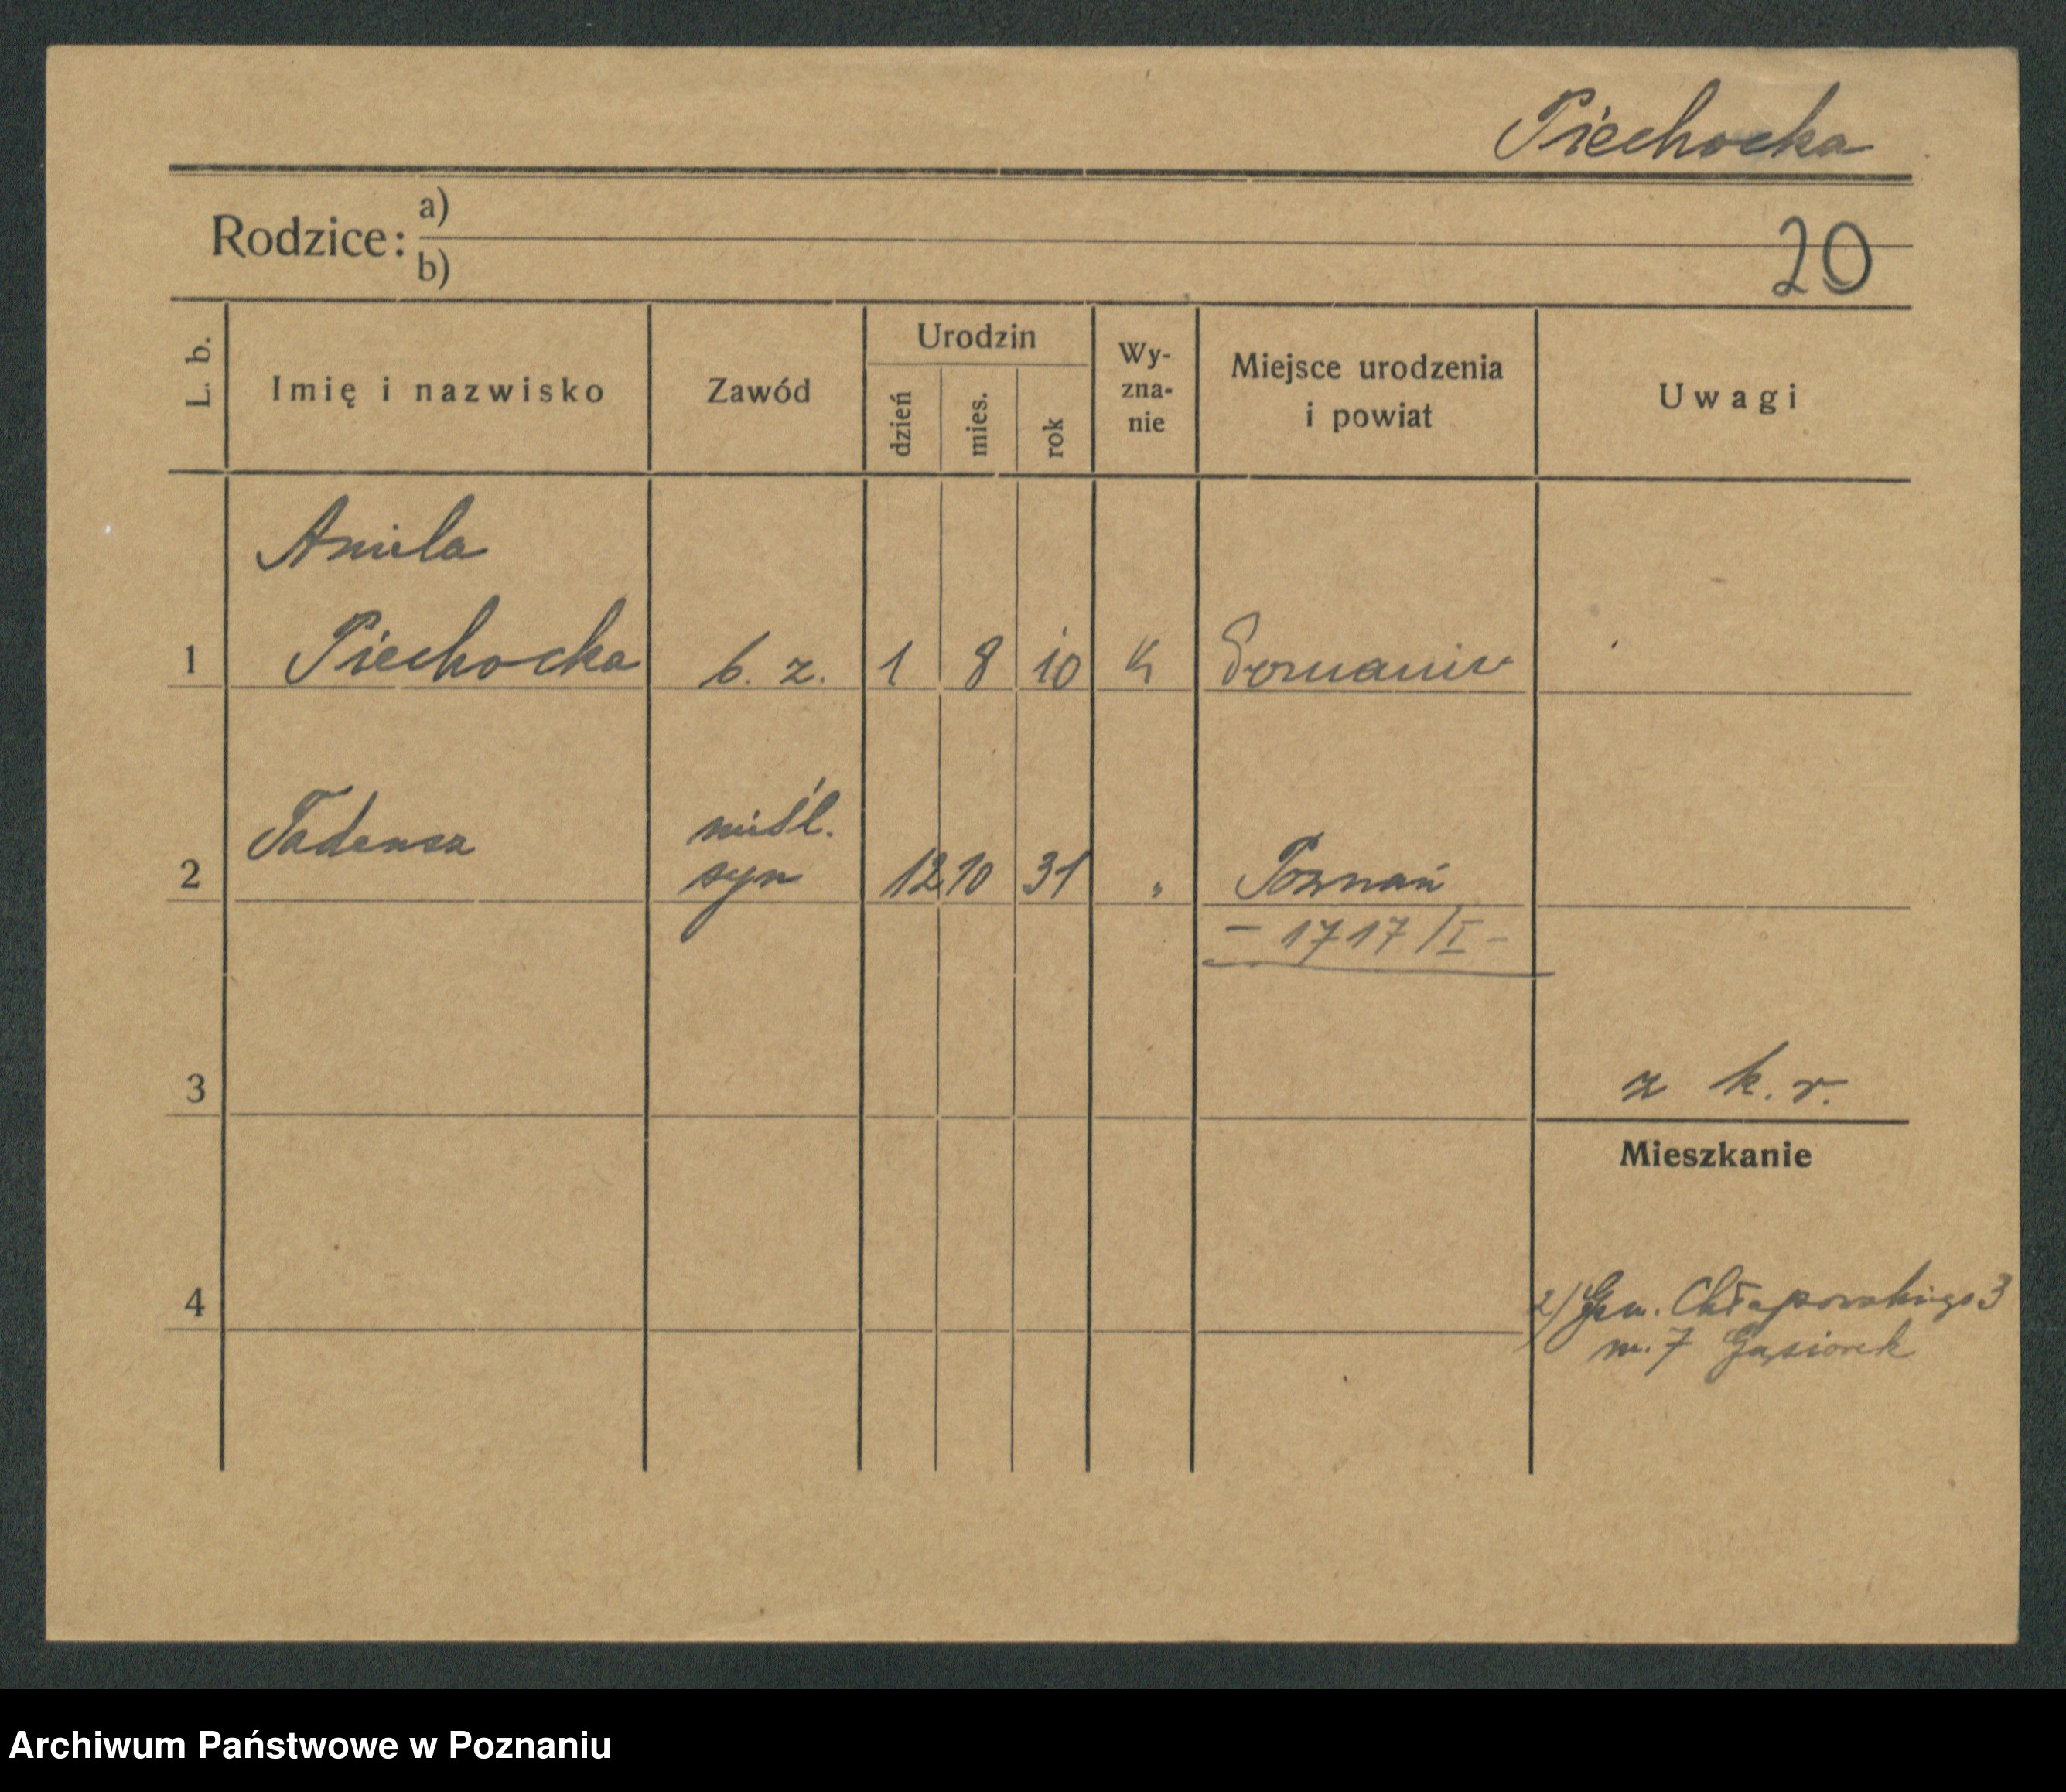 Piechocka
Rodzice: a)
b)
20
L. b.
Imię i nazwisko
Zawód
Urodzin
dzień
mies.
rok
Wy-
zna-
nie
Miejsce urodzenia
i powiat
Uwagi
Aniela
1 Piechocka b. z. 1 8 10 K
Tadeusz nieśl.
2 syn 12 10 31 " Poznań
– 1717/I –
3 z k. r.
Mieszkanie
4 2) Gen. Chłapowskiego 3
m. 7 Gąsiorek
Archiwum Państwowe w Poznaniu